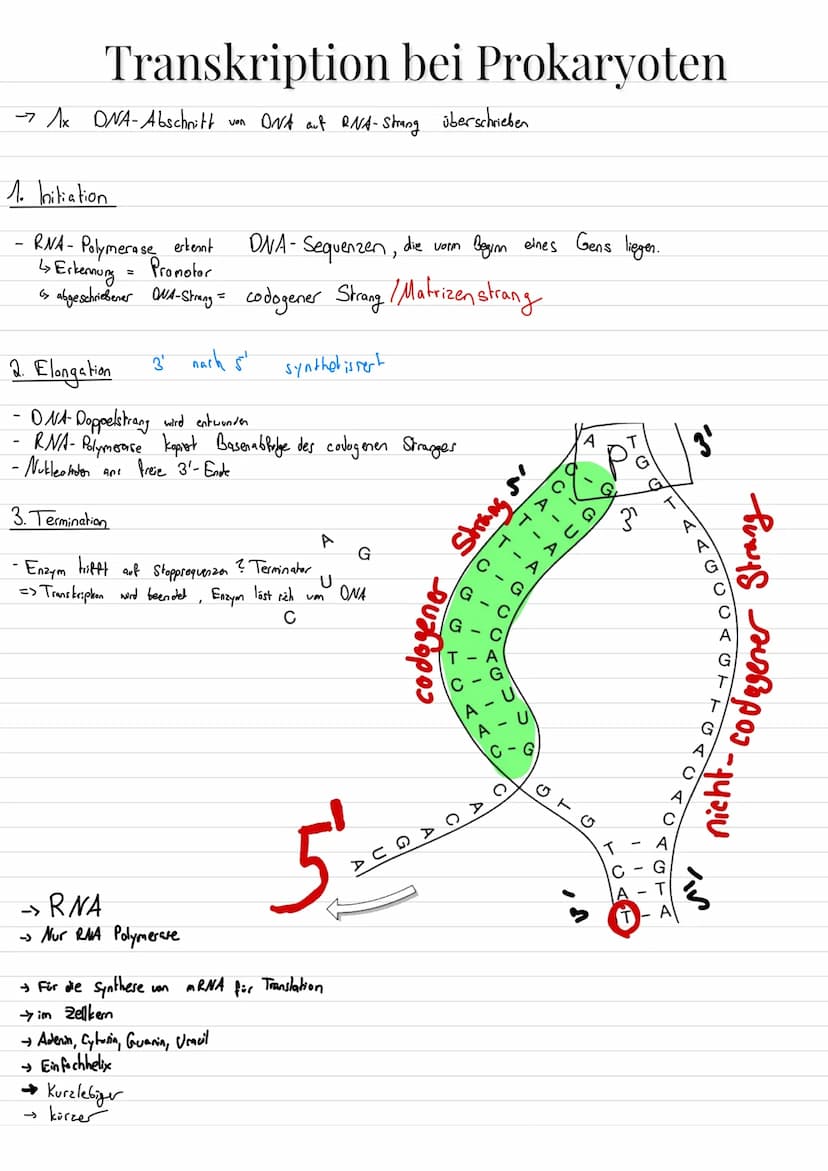 Transkription bei Prokaryoten
→ 1x DNA-Abschnitt von DNA auf RNA-Strang überschrieben
1. Initiation
- RNA-Polymerase erkennt DNA-Sequenzen, die vorm Beginn eines Gens liegen.
↳ Erkennung = Promotor
↳ abgeschriebener DNA-Strang = codogener Strang / Matrizenstrang
2. Elongation 3' nach 5' synthetisiert
- DNA-Doppelstrang wird entwunden
- RNA-Polymerase kopiert Basenabfolge des codogenen Stranges
- Nukleotiden ans freie 3'-Ende
3. Termination
- Enzym trifft auf Stoppsequenzen ? Terminator
=> Transkription wird beendet, Enzym löst sich von DNA
A
G
U
C
A T
P G
3'
5'
C - G G
C - G T
A - U 3' A
T - A A
T - A G
C - G C
G - C C
G - C A
T - A G
C - G T
A - U T
A - U G
C - G A
C
A
C
codogener Strang
nicht-codogener Strang
C A C A G A C G U A
G T G
T - A
C - G
A - T
T - A
3'
5'
5'
→ RNA
→ Nur RNA Polymerase
→ Für die Synthese von mRNA für Translation
→ im Zellkern
→ Adenin, Cytosin, Guanin, Uracil
→ Einfachhelix
→ Kurzlebiger
→ kürzer